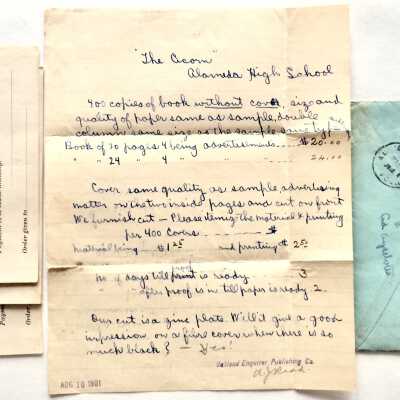 "The Acorn"
Alameda High School
400 copies of book without cover, size and
quality of paper same as sample, double
column same size as the sample, same type
Book of 20 pages 4 being advertisements $20.00
" " 24 " 4 " " " 24.00
Cover same quality as sample, advertising
matter on inside two pages and cut on front
We furnish cut – Please itemize the material & printing
per 400 Covers $
material being $1 25 and printing $ 2 50
No of days till proof is ready 3
" " after proof is in till paper is ready 2
Our cut is a zinc plate. Will it give a good
impression on a fibre cover when there is so
much black? – Yes!
Oakland Enquirer Publishing Co.
AUG 10 1901
Order given to
Order given to